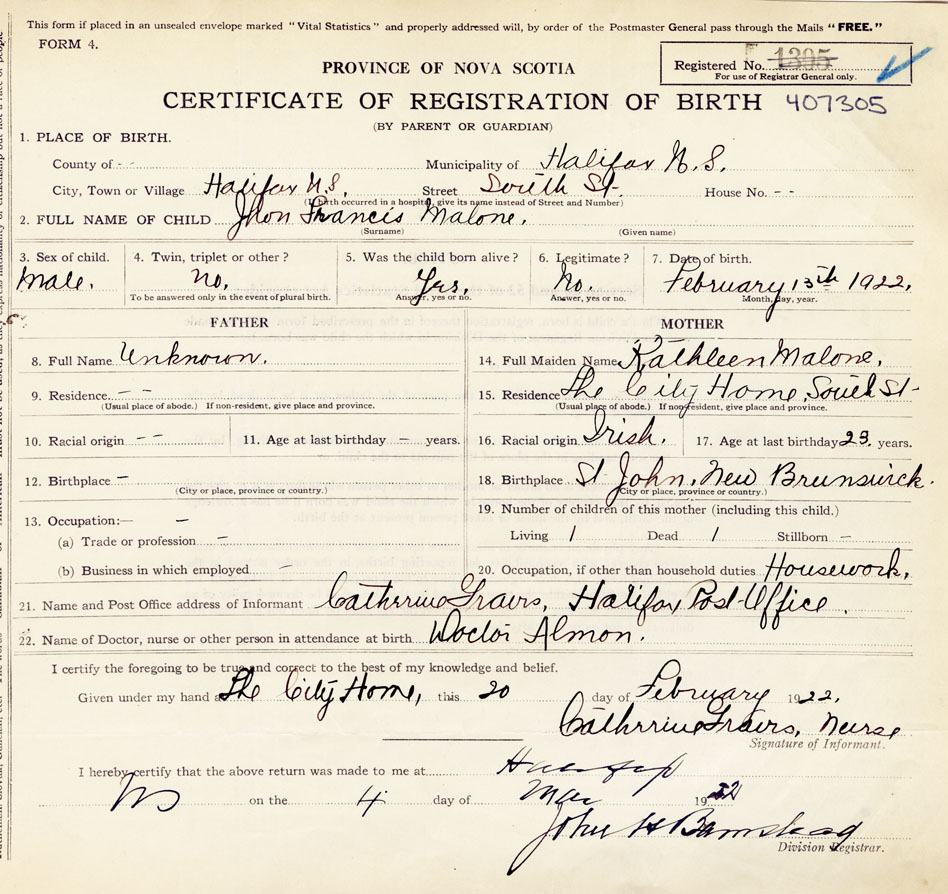 This form if placed in an unsealed envelope marked "Vital Statistics" and properly addressed will, by order of the Postmaster General pass through the Mails "FREE."
FORM 4.
Registered No. 1395
For use of Registrar General only.
PROVINCE OF NOVA SCOTIA
CERTIFICATE OF REGISTRATION OF BIRTH 407305
(BY PARENT OR GUARDIAN)
1. PLACE OF BIRTH.
County of - - Municipality of Halifax N.S.
City, Town or Village Halifax N.S. Street South St. House No. - -
(If birth occurred in a hospital, give its name instead of Street and Number)
2. FULL NAME OF CHILD Jhon Francis Malone.
(Surname) (Given name)
3. Sex of child. 4. Twin, triplet or other? 5. Was the child born alive? 6. Legitimate? 7. Date of birth.
Male. No. Yes. No. February 13th 1922.
To be answered only in the event of plural birth. Answer, yes or no. Answer, yes or no. Month, day, year.
FATHER MOTHER
8. Full Name Unknown. 14. Full Maiden Name Kathleen Malone.
9. Residence. - - 15. Residence The City Home, South St-
(Usual place of abode.) If non-resident, give place and province. (Usual place of abode.) If non-resident, give place and province.
10. Racial origin - - 11. Age at last birthday - years. 16. Racial origin Irish. 17. Age at last birthday 23. years.
12. Birthplace - 18. Birthplace St John, New Brunswick.
(City or place, province or country.) (City or place, province or country.)
13. Occupation:— - 19. Number of children of this mother (including this child.)
(a) Trade or profession - Living 1 Dead 1 Stillborn -
(b) Business in which employed - 20. Occupation, if other than household duties Housework.
21. Name and Post Office address of Informant Halifax Post-Office.
22. Name of Doctor, nurse or other person in attendance at birth Doctor Almon.
I certify the foregoing to be true and correct to the best of my knowledge and belief.
Given under my hand a The City Home, this 20 day of February 1922.
Nurse
Signature of Informant.
I hereby certify that the above return was made to me at Halifax
NS on the 4 day of Mar 1922
John H Barnstead
Division Registrar.